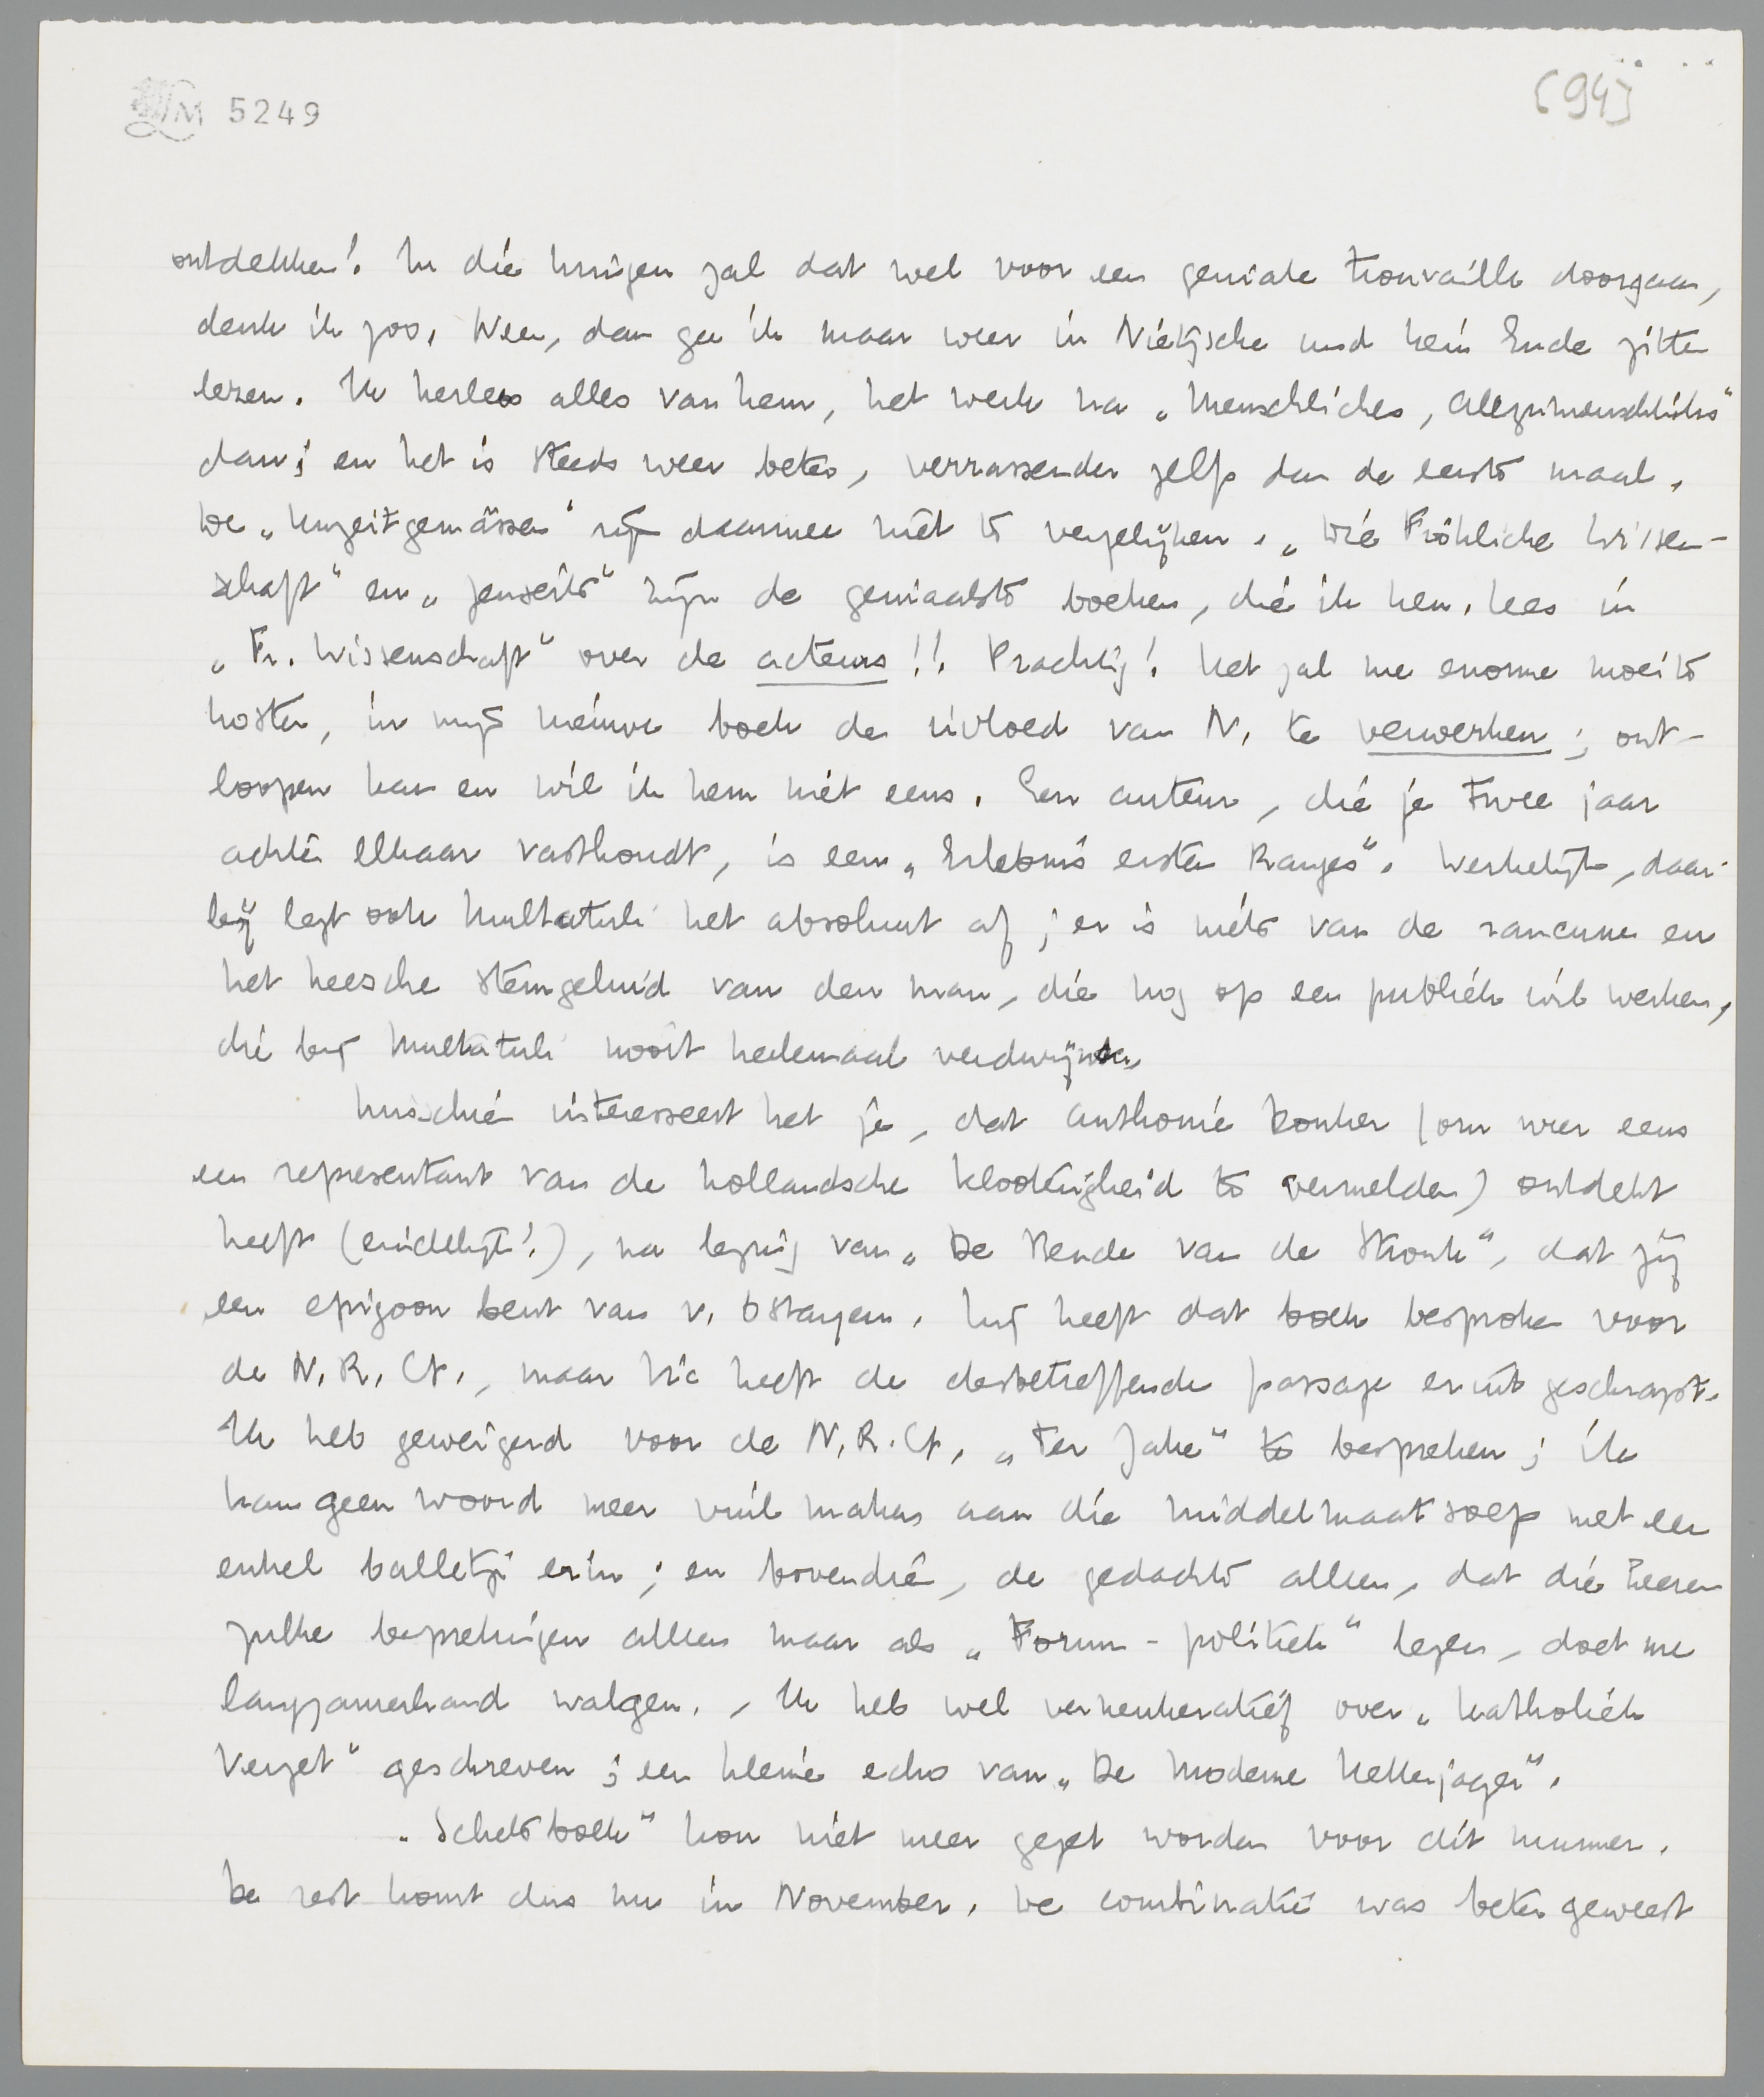 LM 5249
[94]
ontdekken! In die kringen zal dat wel voor een geniale trouvaille doorgaan,
denk ik zoo. Neen, dan ga ik maar weer in Nietzsche und kein Ende zitten
lezen. Ik herlees alles van hem, het werk na „Menschliches, Allzumenschliches"
dan; en het is steeds weer beter, verrassender zelfs dan de eerste maal.
De „Unzeitgemässen" zijn daarmee niet te vergelijken. „Die Fröhliche Wissen-
schaft" en „Jenseits" zijn de geniaalste boeken, die ik ken. Lees in
„Fr. Wissenschaft" over de acteurs!! Prachtig! Het zal me enorme moeite
kosten, in mijn nieuwe boek de invloed van N. te verwerken; ont-
loopen kan en wil ik hem niet eens. Een auteur, die je twee jaar
achter elkaar vasthoudt, is een „Erlebnis ersten Ranges". Werkelijk, daar-
bij legt ook Multatuli het absoluut af; er is niets van de rancune en
het heesche stemgeluid van den man, die nog op een publiek wil werken,
die bij Multatuli nooit heelemaal verdwijnen.
Misschien interesseert het je, dat Anthonie Donker (om weer eens
een representant van de hollandsche klooterigheid te vermelden) ontdekt
heeft (eindelijk!), na lezing van „De Bende van de Stronk", dat jij
een epigoon bent van v. Ostayen. Hij heeft dat boek besproken voor
de N.R.Ct., maar Vic heeft de desbetreffende passage eruit geschrapt.
Ik heb geweigerd voor de N.R.Ct. „Ter Zake" te bespreken; ik
kan geen woord meer vuil maken aan die middelmaatsoep met een
enkel balletje erin; en bovendien, de gedachte alleen, dat die heeren
zulke besprekingen alleen maar als „Forum-politiek" lezen, doet me
langzamerhand walgen. Ik heb wel verkenkeratief over „Katholiek
Verzet" geschreven; een kleine echo van „De Moderne Ketterjager".
„Schetsboek" kon niet meer gezet worden voor dit nummer.
De rest komt dus nu in November. De combinatie was beter geweest